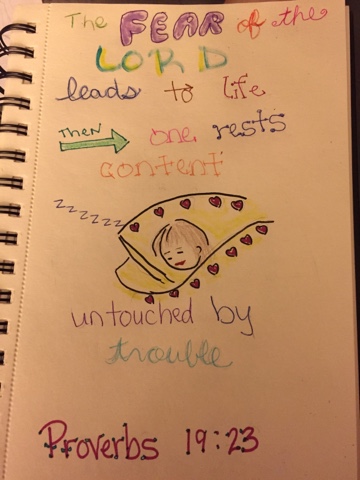 The FEAR of the
LORD
leads to life
THEN one rests
content
zzzzzzz
untouched by
trouble
Proverbs 19:23